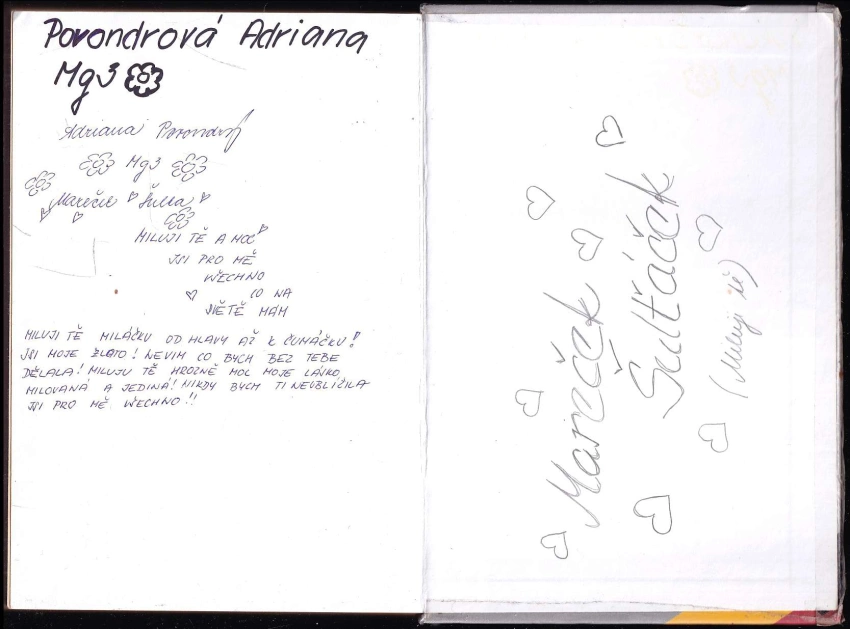 Povondrová Adriana
Mg3
Adriana Povondr
Mg3
Mareček Šulta
MILUJI TĚ A MOC
JSI PRO MĚ
VŠECHNO
CO NA
SVĚTĚ MÁM
MILUJI TĚ MILÁČKU OD HLAVY AŽ K ČUMÁČKU!
JSI MOJE ZLATO! NEVIM CO BYCH BEZ TEBE
DĚLALA! MILUJU TĚ HROZNĚ MOC MOJE LÁSKO
MILOVANÁ A JEDINÁ! NIKDY BYCH TI NEUBLÍŽILA
JSI PRO MĚ VŠECHNO!!
Mareček
Šulťáček
(Miluji tě)